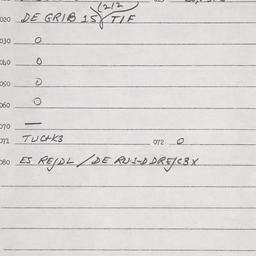 (212
020 DE GRIB 15 TIF
030 0
040 0
050 0
060 0
070 —
071 TUCHK3 072 0
080 ES RE/DL / DE RUS-DDRE/CBX